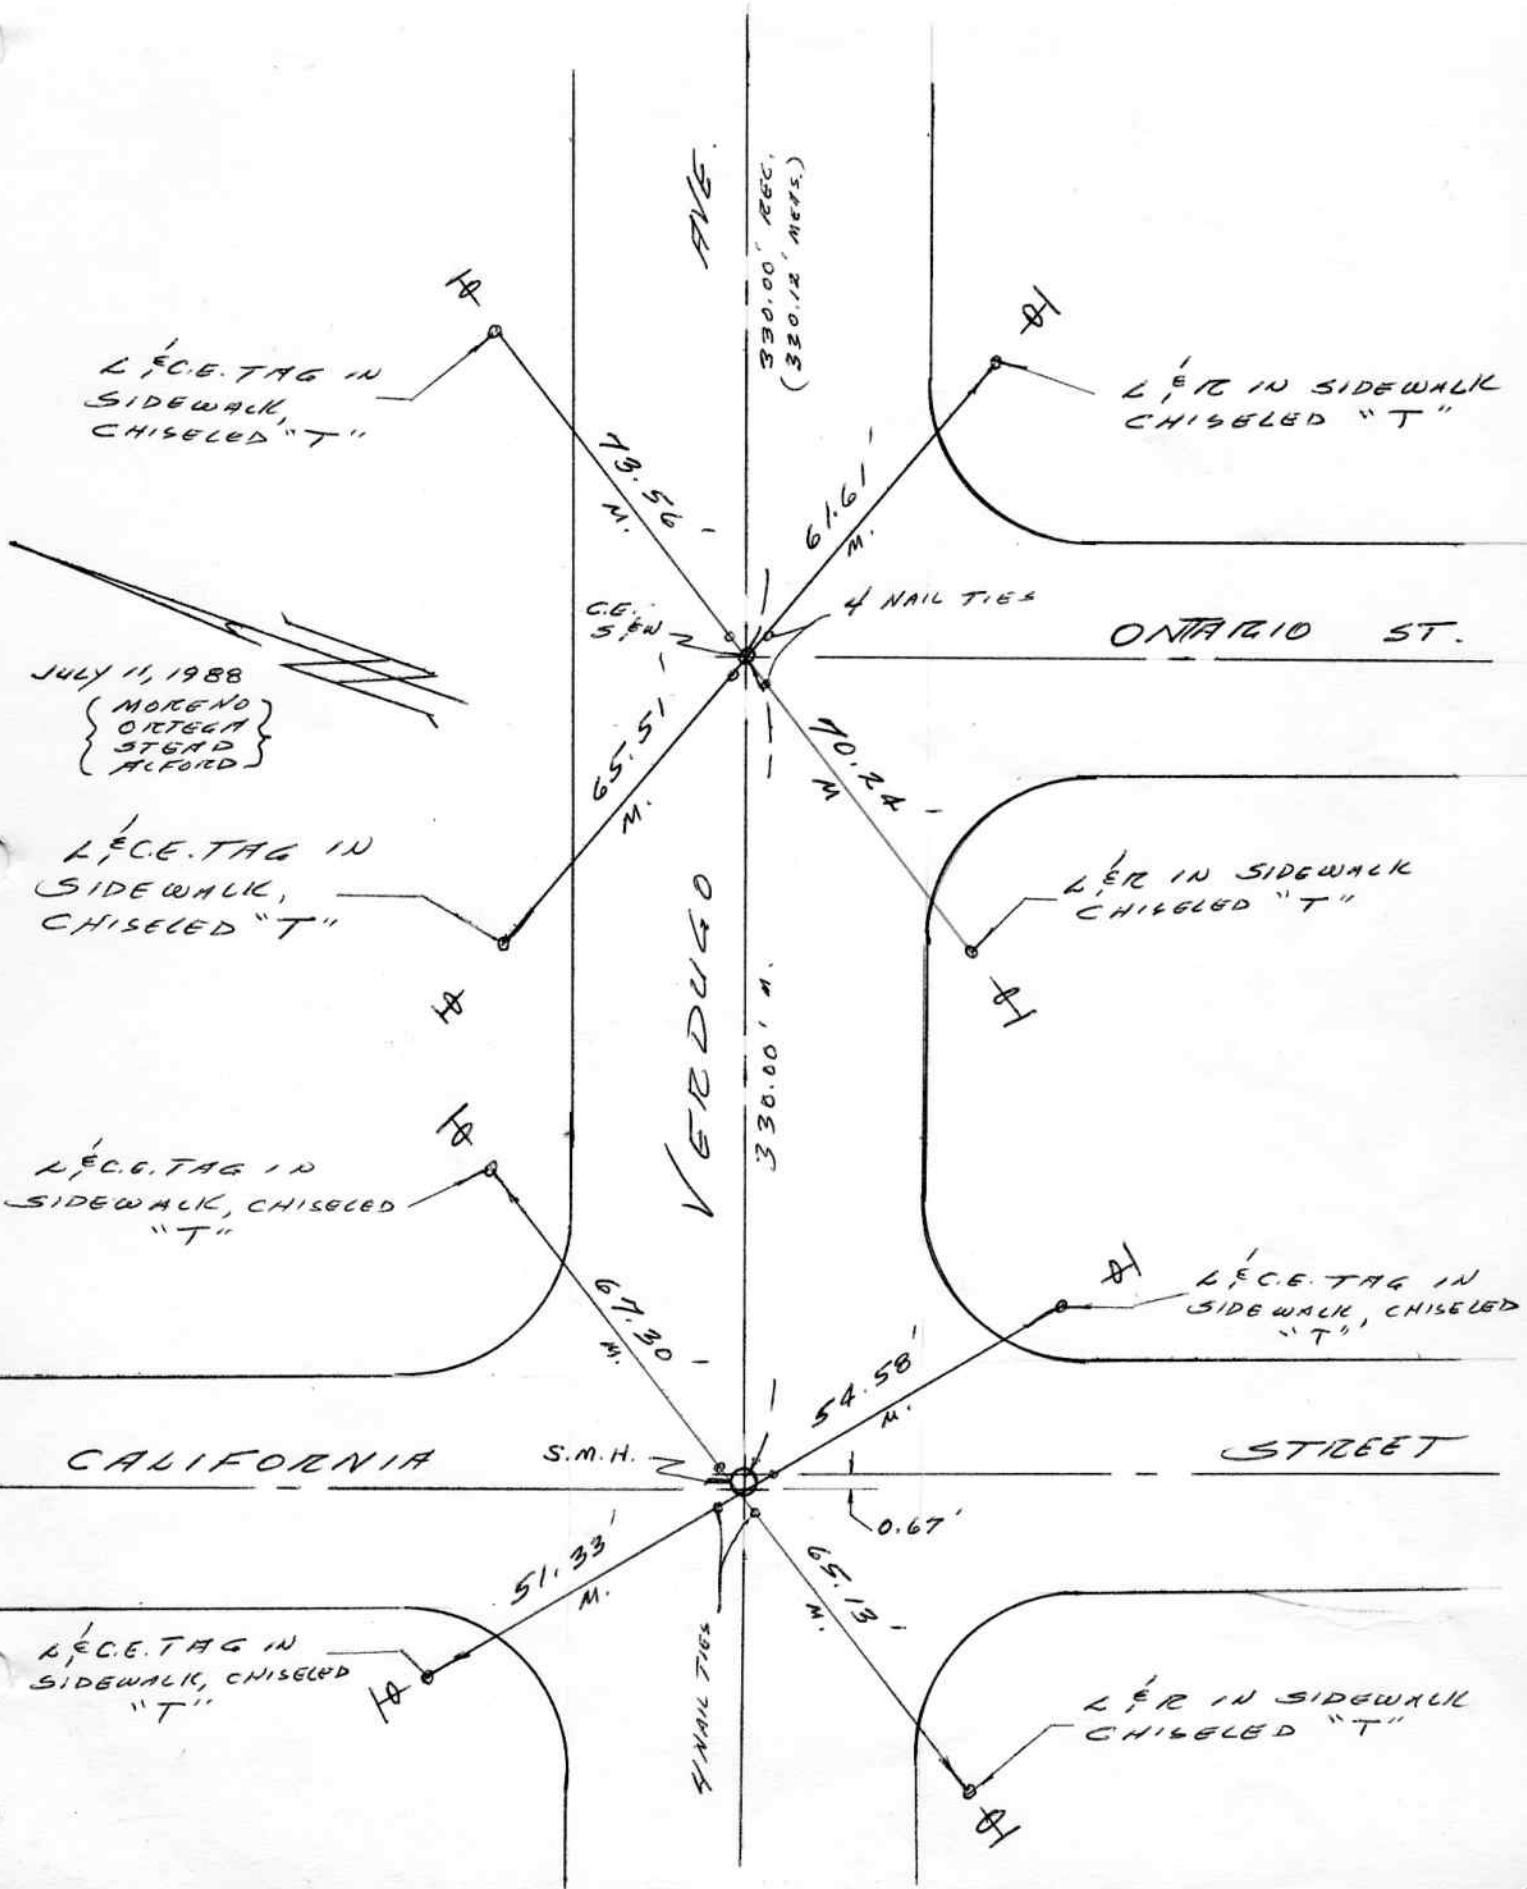 AVE.
330.00' REC.
(330.12' MEAS.)
L & C.E. TAG IN
SIDEWALK,
CHISELED "T"
L & R IN SIDEWALK
CHISELED "T"
73.56'
M.
61.61'
M.
C.E.
S & W
4 NAIL TIES
ONTARIO ST.
JULY 11, 1988
MORENO
ORTEGA
STEAD
ALFORD
65.51'
M.
70.24'
M
L & C.E. TAG IN
SIDEWALK,
CHISELED "T"
L & R IN SIDEWALK
CHISELED "T"
VERDUGO
330.00' M.
L & C.E. TAG IN
SIDEWALK, CHISELED
"T"
L & C.E. TAG IN
SIDEWALK, CHISELED
"T"
67.30'
M.
54.58'
M.
CALIFORNIA STREET
S.M.H.
0.67'
51.33'
M.
65.13'
M.
4 NAIL TIES
L & C.E. TAG IN
SIDEWALK, CHISELED
"T"
L & R IN SIDEWALK
CHISELED "T"